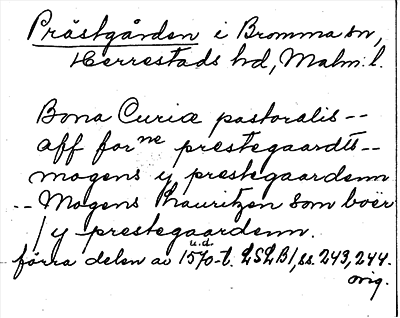 Prästgården i Bromma sn,
Herrestads hd, Malm. l.
Bona Curiæ pastoralis --
aff forne prestegaardts --
mogens y prestegaardenn
-- Mogens Lauritzen som boer
/ y prestegaardenn.
u.d.
förra delen av 1570-t. LSLB 1, ss. 243, 244.
orig.